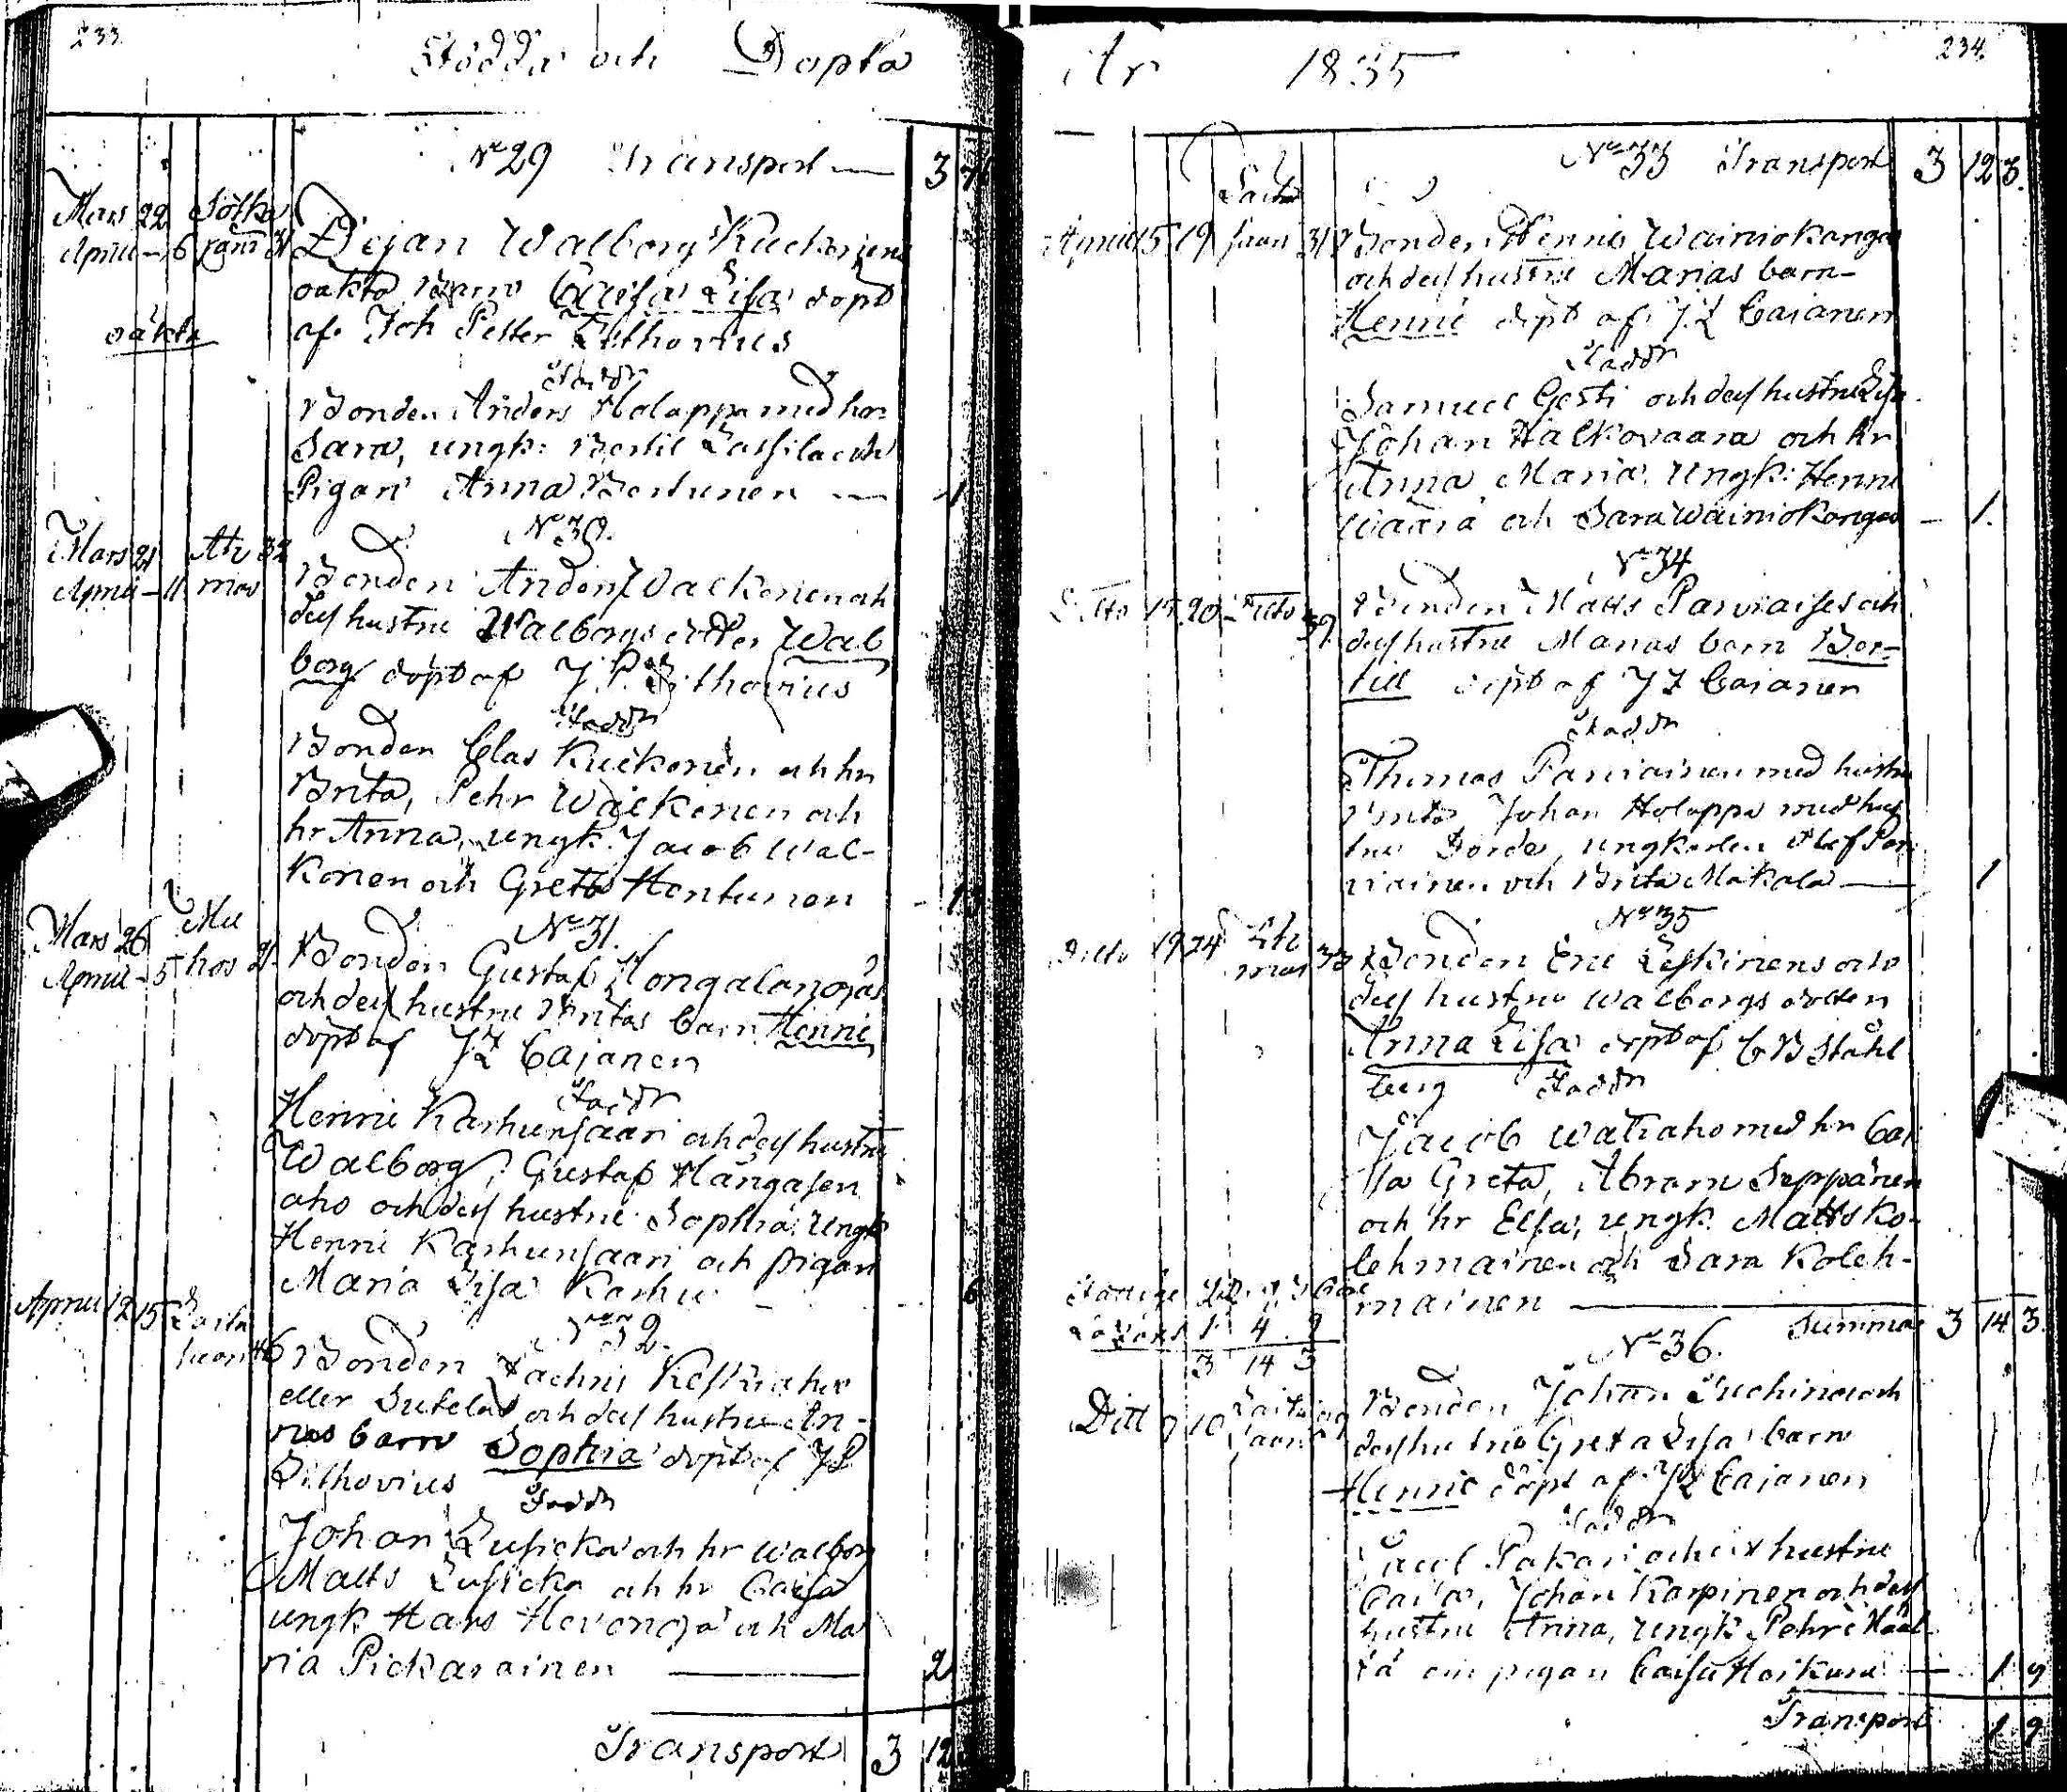 233.
Födda och Döpta
No 29 Transport — 3
Mars 22 Sotka
April — 6 jarvi 31
Pigan Walborg Kuckosens
oäkta Barn Caisa Lisa döpt
oäkta
af Joh Petter Lithovius
Faddr
Bonden Anders Holappa med hor
Sara, ungk: Bertil Lassila och
Pigan Anna Bertunen — 1
No 30.
Mars 21 Ah 32
April — 11 mas
Bonden Anders Walkonen och
dess hustru Walborgs dotter Wal
borg döpt af J.P. Lithovius
Faddr
Bonden Clas Kuckonen och hr
Brita, Pehr Walkonen och
hr Anna, ungk. Jacob Wal-
konen och Greta Hentunen
No 31.
Mars 26 Mu
April — 5 hos 21.
Bonden Gustaf Hongalanojas
och dess hustru Britas barn Henric
döpt af JZ Cajanen
Faddr
Henric Karhunsaari och dess hustru
Walborg, Gustaf Hangasen
aho och dess hustru Sophia, Ungk
Henric Karhunsaari och pigan
Maria Lisa Karhu
No 32.
April 12 15 Laita
saari 46
Bonden Zachris Keskiaho
eller Sutelas och dess hustru An-
nas barn Sophia döpt af JP
Lithovius Faddr
Johan Lusicka och hr Walborg
Matts Lusicka och hr Caisa
ungk Hans Hevonoja och Ma
ria Pickarainen — 2
Transport 3 12
234.
År 1835
No 33 Transport 3 12 3.
Laita
April 15 19 saari 31
Bonden Hennis Wainiokangas
och dess hustru Marias barn
Henric döpt af JZ Cajanen
Faddr
Samuel Gesti och dess hustru Lisa
Johan Halkovaara och hr
Anna Maria, Ungk: Henric
Waara och Sara Wainiokangas — 1.
No 34
Ditto 15 20 Ditto 39
Bonden Matts Parviaises och
dess hustru Marias barn Ber-
till döpt af JZ Cajanen
Faddr
Thomas Parviainen med hustru
Brita, Johan Holappa med hus
tru Dorde, ungkarlen Olof Par
viainen och Brita Makala — 1
No 35
Ditto 19 24 33
Bonden Eric Leskinens och
dess hustru Walborgs dotter
Anna Lisa döpt af CB Ståhl
berg Faddr
Jacob Watiaho med hr Cai
sa Greta, Abram Seppänen
och hr Elsa, ungk. Matts Ko-
lehmainen och Sara Koleh-
mainen — Summa 3 14 3.
3 14 3
No 36.
Ditt 9 10 Laita
saari
Bonden Johan Luchinen och
dess hustru Greta Lisa barn
Henric döpt af JZ Cajanen
Faddr
Paul Pakari och dess hustru
Caisa, Johan Karpinen och dess
hustru Anna, Ungk Pehr Määt
tä och pigan Caisa Heikura — 1 9
Transport 1 9